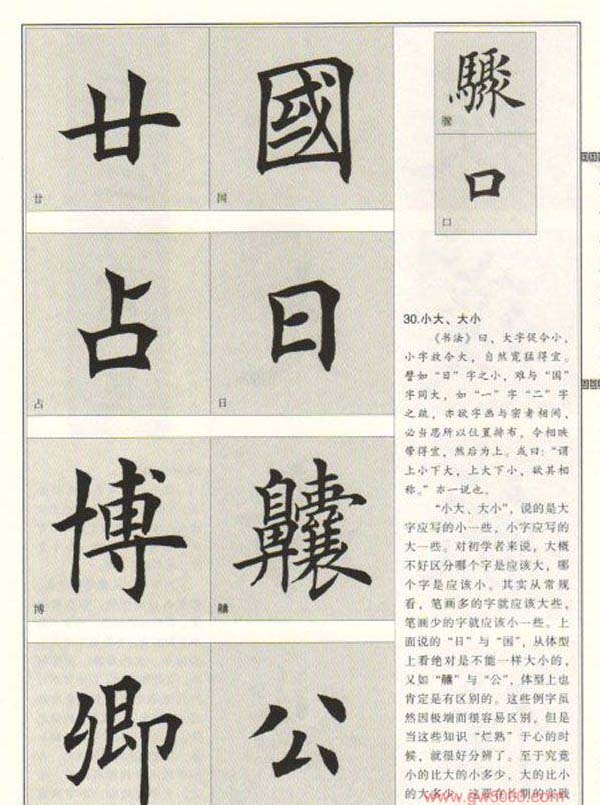 廿
國
廿
国
占
日
占
日
博
齉
博
齉
卿
公
驟
骤
口
口
30.小大、大小
《书法》曰，大字促令小，
小字放令大，自然宽猛得宜。
譬如“日”字之小，难与“国”
字同大，如“一”字“二”字
之疏，亦欲字画与密者相间，
必当思所以位置排布，令相映
带得宜，然后为上。或曰：“谓
上小下大，上大下小，欲其相
称。”亦一说也。
“小大、大小”，说的是大
字应写的小一些，小字应写的
大一些。对初学者来说，大概
不好区分哪个字是应该大，哪
个字是应该小。其实从常规
看，笔画多的字就应该大些，
笔画少的字就应该小一些。上
面说的“日”与“国”，从体型
上看绝对是不能一样大小的，
又如“齉”与“公”，体型上也
肯定是有区别的。这些例字虽
然因极端而很容易区别，但是
当这些知识“烂熟”于心的时
候，就很好分辨了。至于究竟
小的比大的小多少、大的比小
的大多少，这要在长期的实践